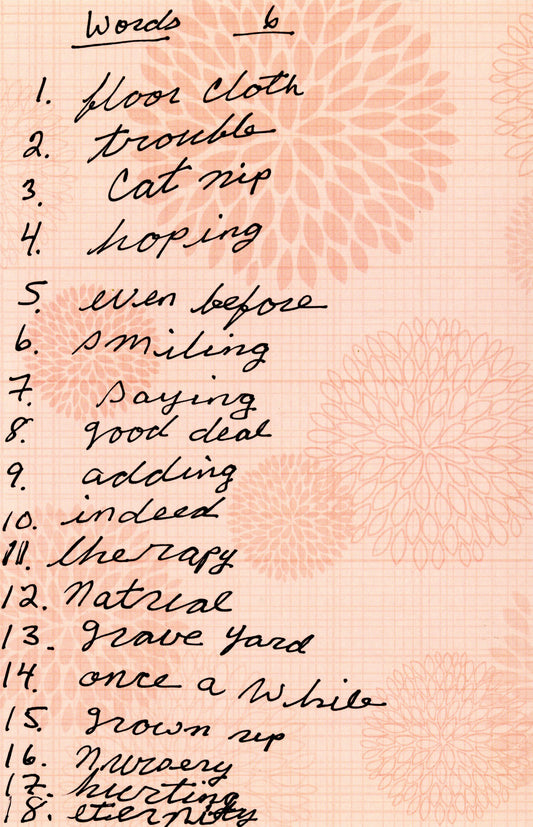 Words 6
1. floor cloth
2. trouble
3. Cat nip
4. hoping
5. even before
6. smiling
7. saying
8. good deal
9. adding
10. indeed
11. therapy
12. Natrual
13. grave yard
14. once a while
15. grown up
16. nursery
17. hurting
18. eternity